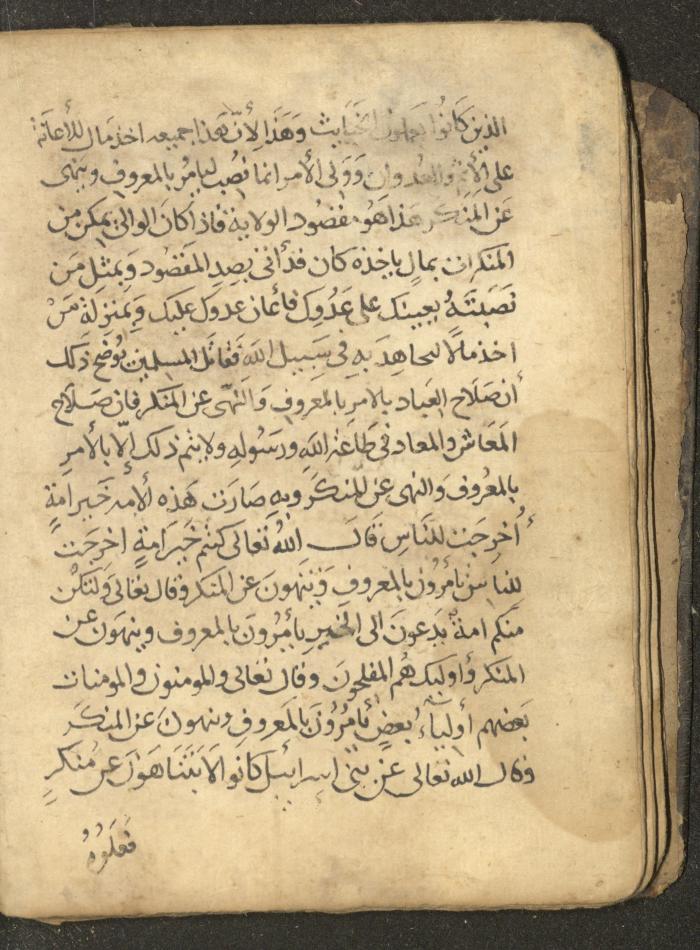 الذين كانوا يعملون الخبايث وهذا لأنّ هذا جميعه اخذ مال للأعانة
على الإثم والعدوان وولى الأمر انما نصب ليامر بالمعروف وينهى
عن المنكر هذا هو مقصود الولاية فاذا كان الوالى يمكن من
المنكرات بمال ياخذه كان قد أتى بضد المقصود وبمثل من
نصبته يعينك على عدوك فأعان عدوك عليك وبمنزلة من
اخذ مالا ليجاهد به فى سبيل الله فقاتل المسلمين يوضح ذلك
أن صلاح العباد بالامر بالمعروف والنهى عن المنكر فان صلاح
المعاش والمعاد فى طاعة الله ورسوله ولا يتم ذلك إلّا بالأمر
بالمعروف والنهى عن المنكر وبه صارت هذه الأمه خير امة
أخرجت للناس قال الله تعالى كنتم خير امة اخرجت
للناس تأمرون بالمعروف وتنهون عن المنكر وقال تعالى ولتكن
منكم امة يدعون الى الخير يأمرون بالمعروف وينهون عن
المنكر وأوليك هم المفلحون وقال تعالى والمومنون والمومنات
بعضهم أولياء بعض يأمرون بالمعروف وينهون عن المنكر
وقال الله تعالى عن بنى اسرائيل كانوا لا يتناهون عن منكر
فعلوه